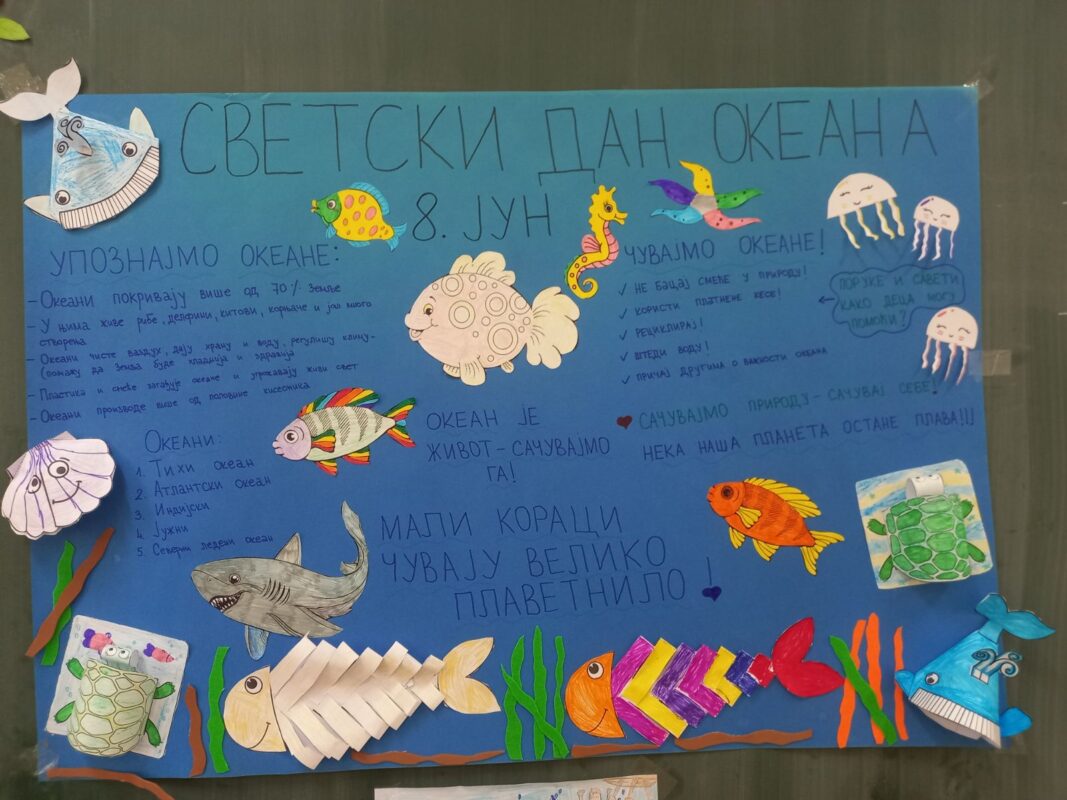 СВЕТСКИ ДАН ОКЕАНА
8. ЈУН
УПОЗНАЈМО ОКЕАНЕ:
- Океани покривају више од 70% Земље
- У њима живе рибе, делфини, китови, корњаче и још много
створења
- Океани чисте ваздух, дају храну и воду, регулишу климу-
(помажу да Земља буде хладнија и здравија
- Пластика и смеће загађује океане и угрожавају живи свет
- Океани производе више од половине кисеоника
Океани:
1. Тихи океан
2. Атлантски океан
3. Индијски
4. Јужни
5. Северни ледени океан
ОКЕАН ЈЕ
ЖИВОТ - САЧУВАЈМО
ГА!
МАЛИ КОРАЦИ
ЧУВАЈУ ВЕЛИКО
ПЛАВЕТНИЛО!
ЧУВАЈМО ОКЕАНЕ!
✓ НЕ БАЦАЈ СМЕЋЕ У ПРИРОДУ!
✓ КОРИСТИ ПЛАТНЕНЕ КЕСЕ!
✓ РЕЦИКЛИРАЈ!
✓ ШТЕДИ ВОДУ!
✓ ПРИЧАЈ ДРУГИМА О ВАЖНОСТИ ОКЕАНА
ПОРУКЕ И САВЕТИ
КАКО ДЕЦА МОГУ
ПОМОЋИ?
САЧУВАЈМО ПРИРОДУ - САЧУВАЈ СЕБЕ!
НЕКА НАША ПЛАНЕТА ОСТАНЕ ПЛАВА!!!